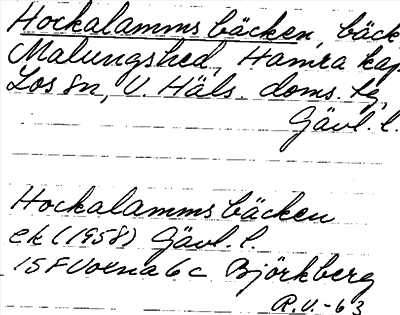 Hockalammsbäcken, bäck
Malungshed, Hamra kap.
Los sn, V. Häls. doms. lg,
Gävl. l.
Hockalammsbäcken
ek (1958) Gävl. l.
15F Voxna 6c Björkberg
R.U.-63